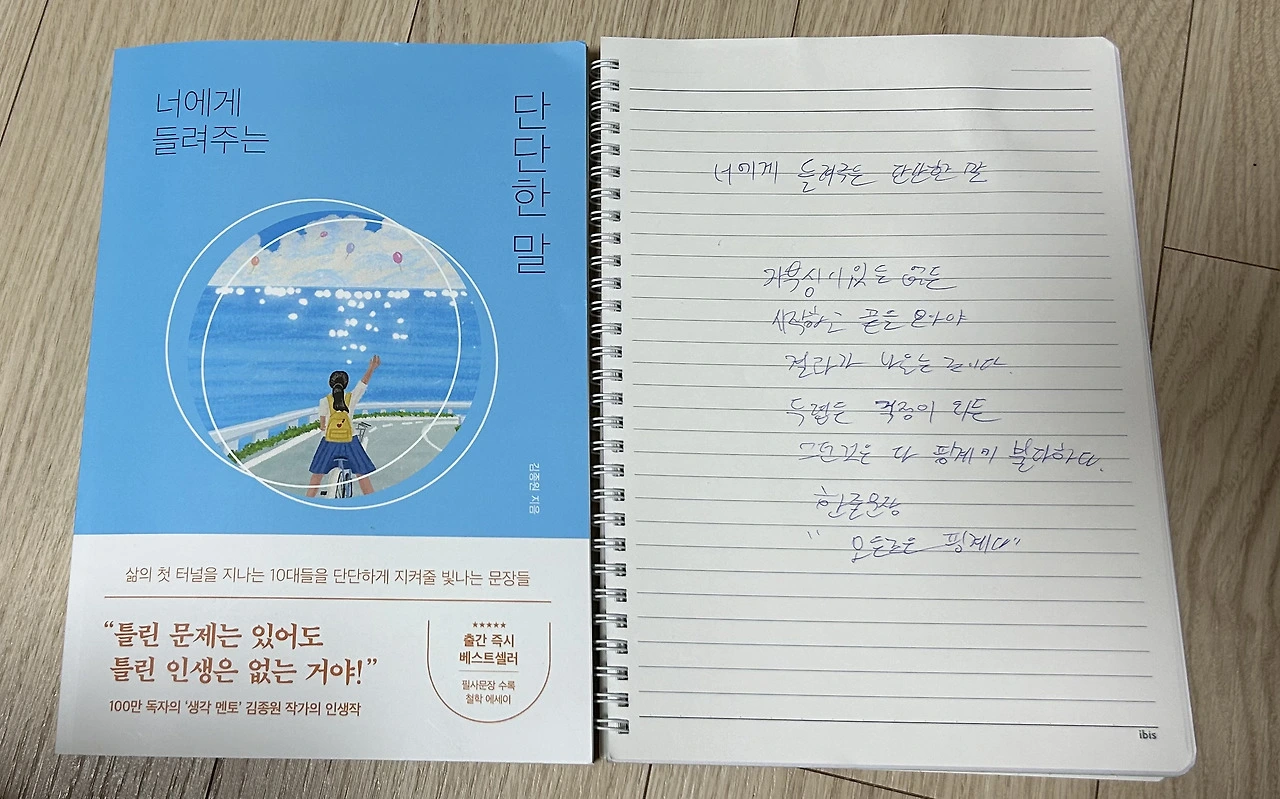 너에게
들려주는
단단한 말
김종원 지음
삶의 첫 터널을 지나는 10대들을 단단하게 지켜줄 빛나는 문장들
“틀린 문제는 있어도
틀린 인생은 없는 거야!”
100만 독자의 ‘생각 멘토’ 김종원 작가의 인생작
★★★★★
출간 즉시
베스트셀러
필사문장 수록
철학 에세이
너에게 들려주는 단단한 말
자부심이 있든 없든
시작하고 끝을 봐야
결과가 나오는
두렵든 걱정이 되든
그런것은 다 핑계에 불과하다.
한줄문장
" 모든것은 핑계다"
ibis